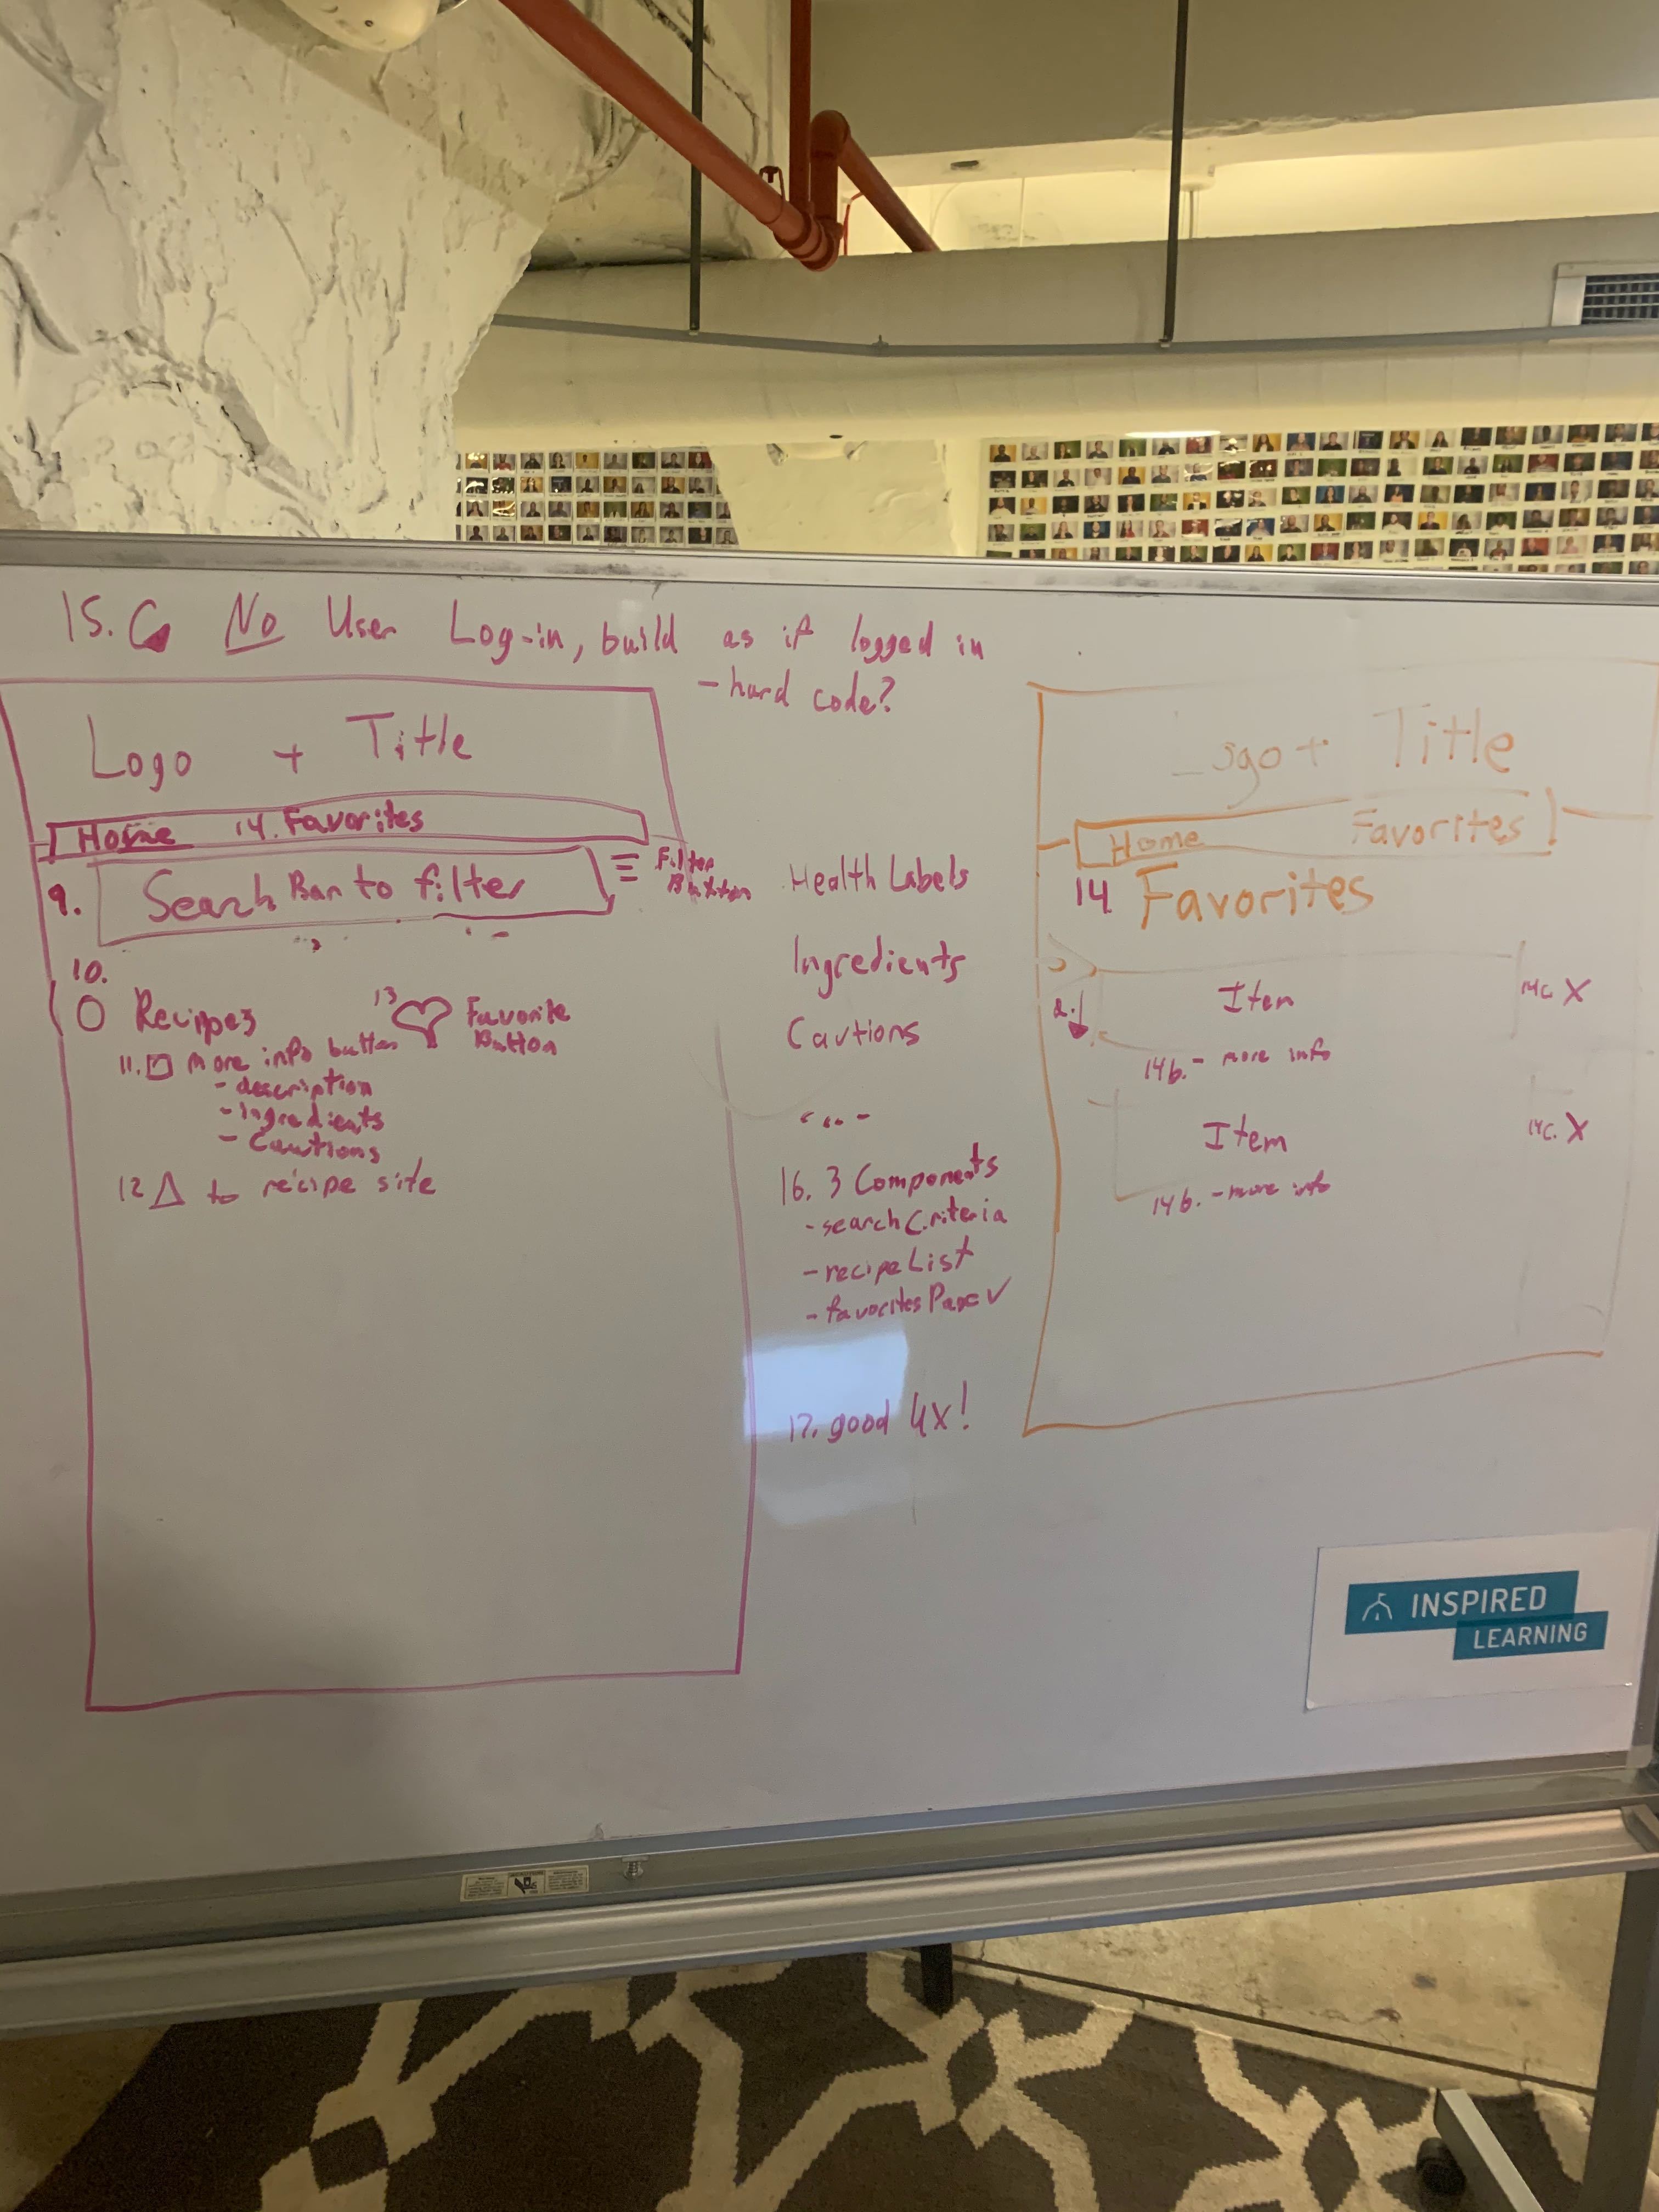 15. C No User Log-in, build as if logged in
- hard code?
Logo + Title
Home 14. Favorites
9. Search Bar to filter
Filter
Button
10.
Recippes
11. more info button
- description
- Ingredients
- Cautions
12 to recipe site
13 Favorite
Button
Health Labels
Ingredients
Cautions
16. 3 Components
- searchCriteria
- recipeList
- favoritesPage ✓
17. good UX!
Logo + Title
Home Favorites
14 Favorites
Item 14c. X
14b. - more info
Item 14c. X
14b. - more info
INSPIRED
LEARNING